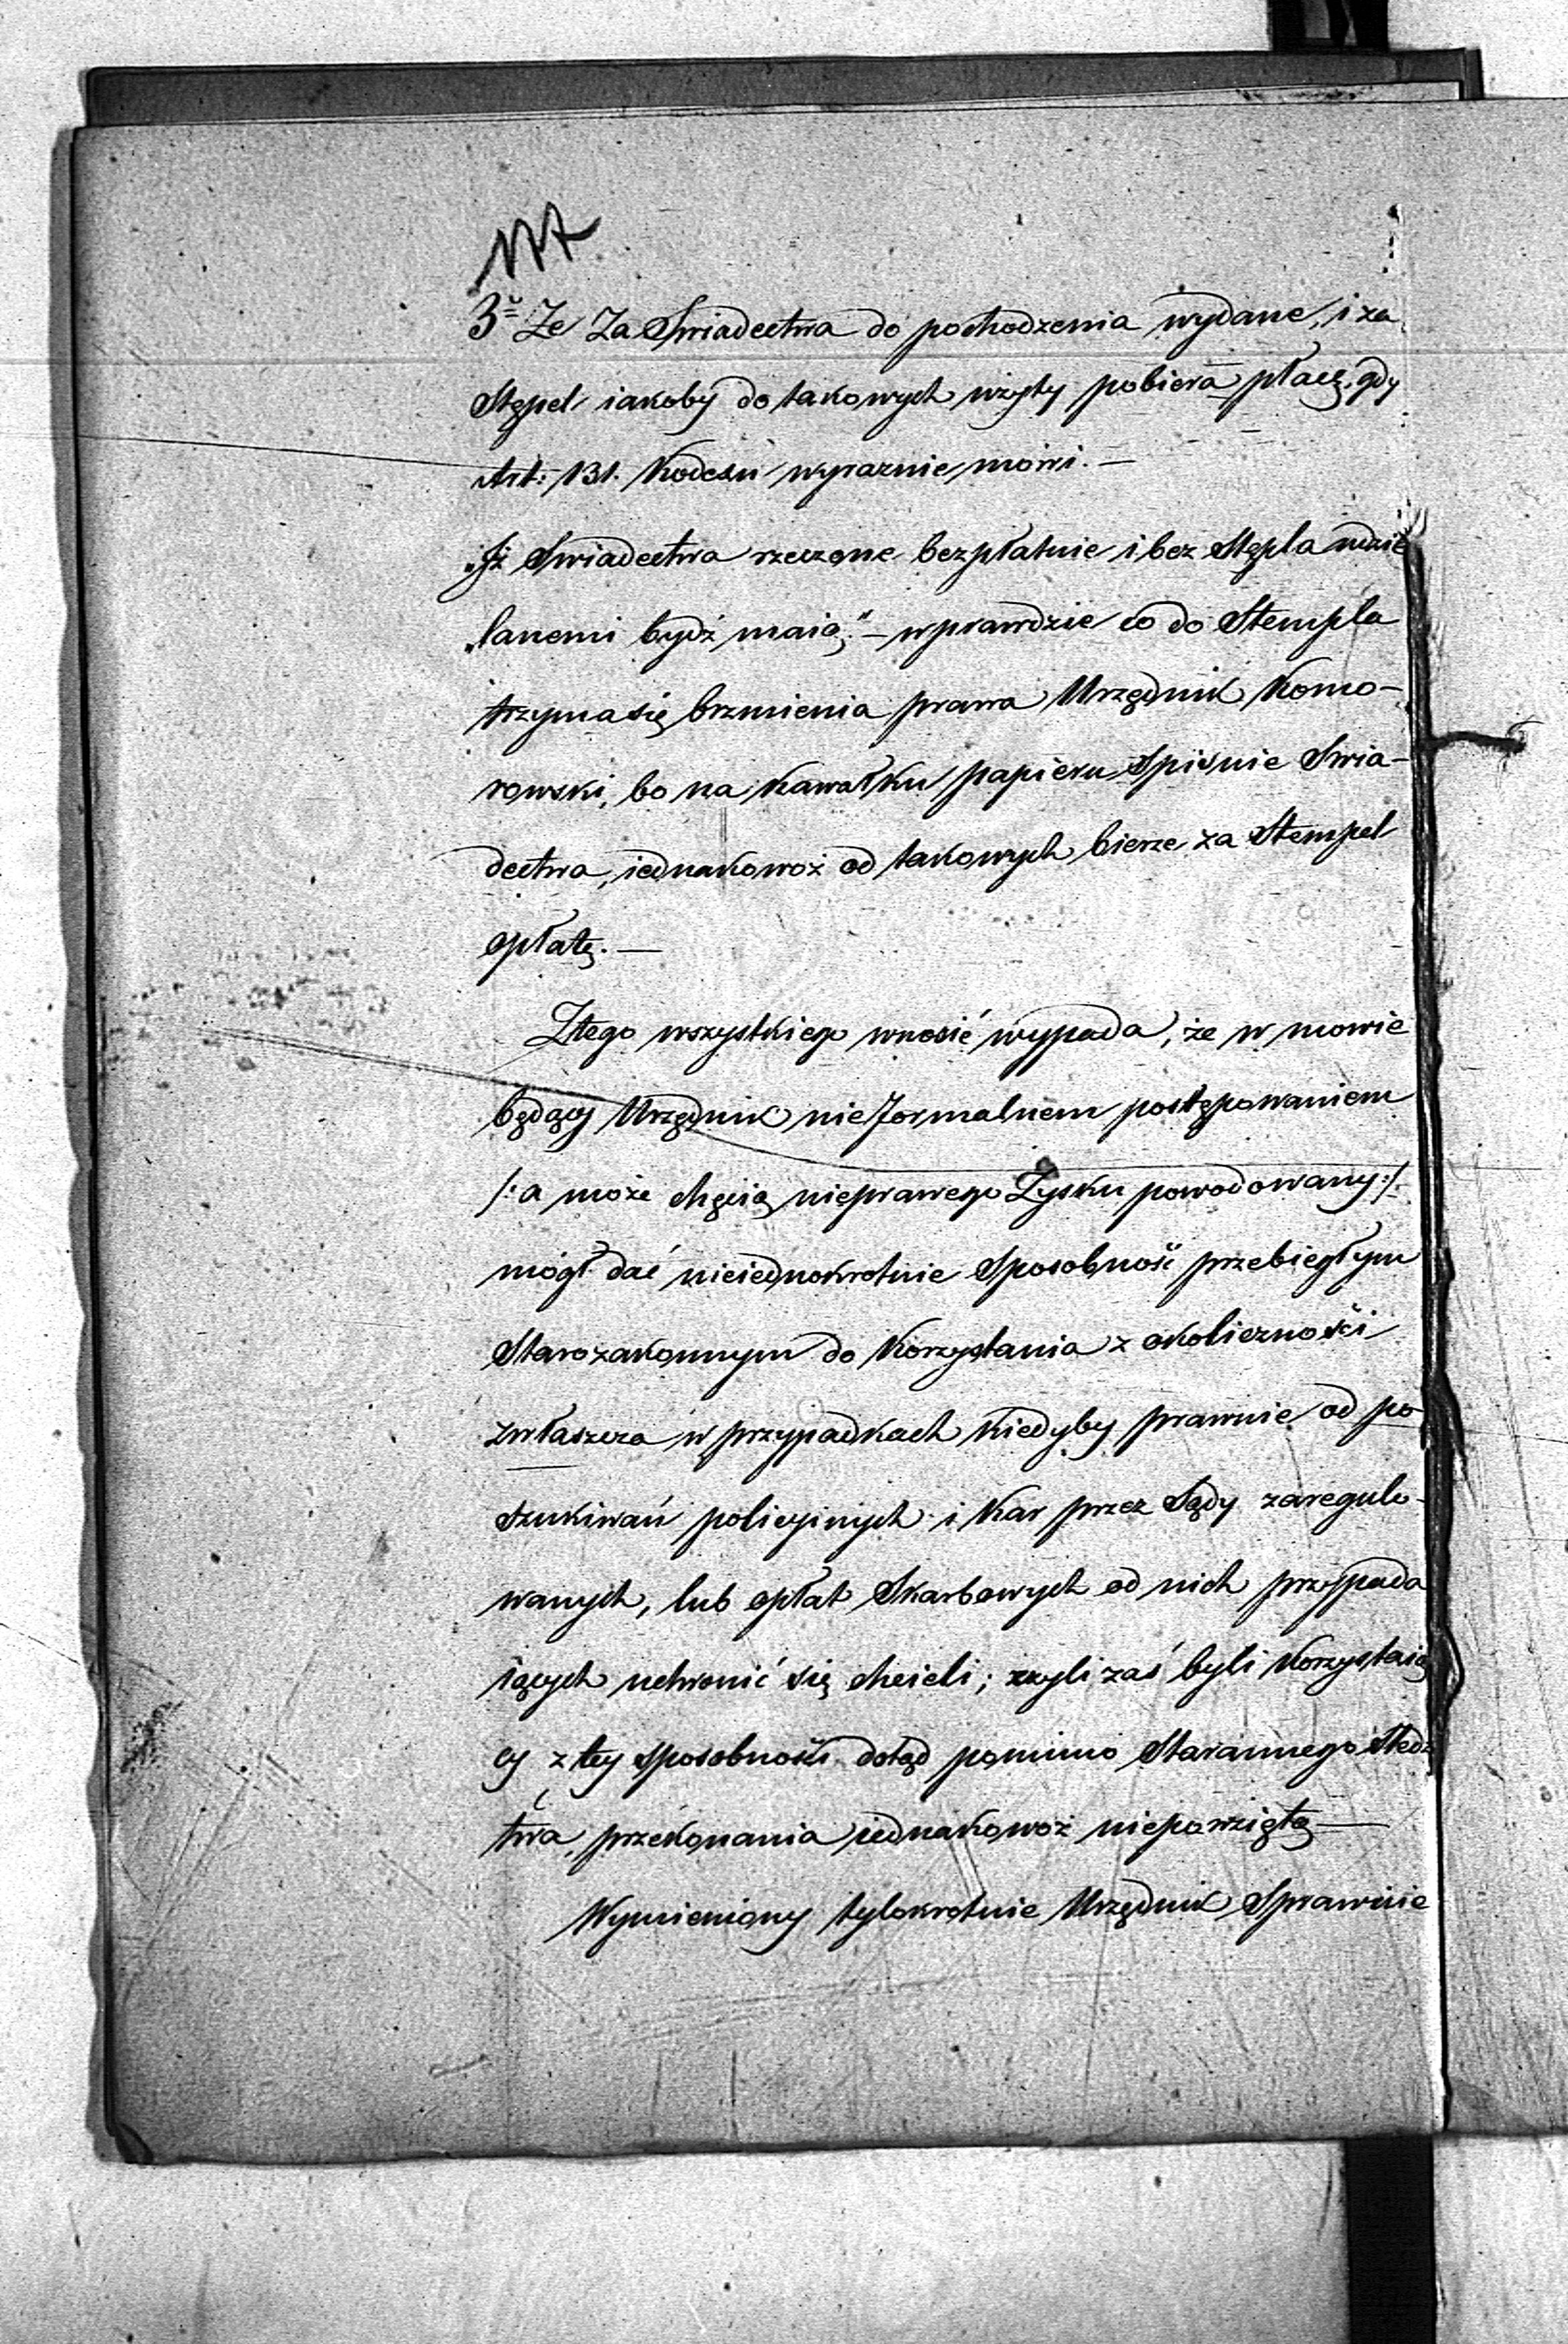 3º Ze Za Swiadectwa do pochodzenia wydane, i za
Stępel iakoby do takowych użyty pobiera płacę, gdy
Art: 131. Kodexu wyraznie mówi. —
„Jż Swiadectwa rzeczone bezpłatnie i bez Stępla udzie
„lanemi bydź maią;" — wprawdzie co do Stempla
trzyma się brzmienia prawa Urzędnik Komo-
rowski, bo na kawałku papieru Spisuie Swia-
dectwa, iednakowoż od takowych bierze za Stempel
opłatę. —
Ztego wszystkiego wnosić wypada, że w mowie
będący Urzędnik nieformalnem postępowaniem
/: a może chęcią nieprawego Zysku powodowany :/
mógł dać nieiednokrotnie Sposobność przebiegłym
Starozakonnym do Korzystania z okoliczności
zwłaszcza w przypadkach kiedyby prawnie od po
szukiwań policyinych i Kar przez Sądy zaregulo-
wanych, lub opłat Skarbowych od nich przypada
iących uchronić się chcieli; czyli zaś byli Korzystaią
cy z tey Sposobności dotąd pomimo Starannego Sledz
twa, przekonania iednakowoż niepowzięto —
Wymieniony tylokrotnie Urzędnik Sprawuie